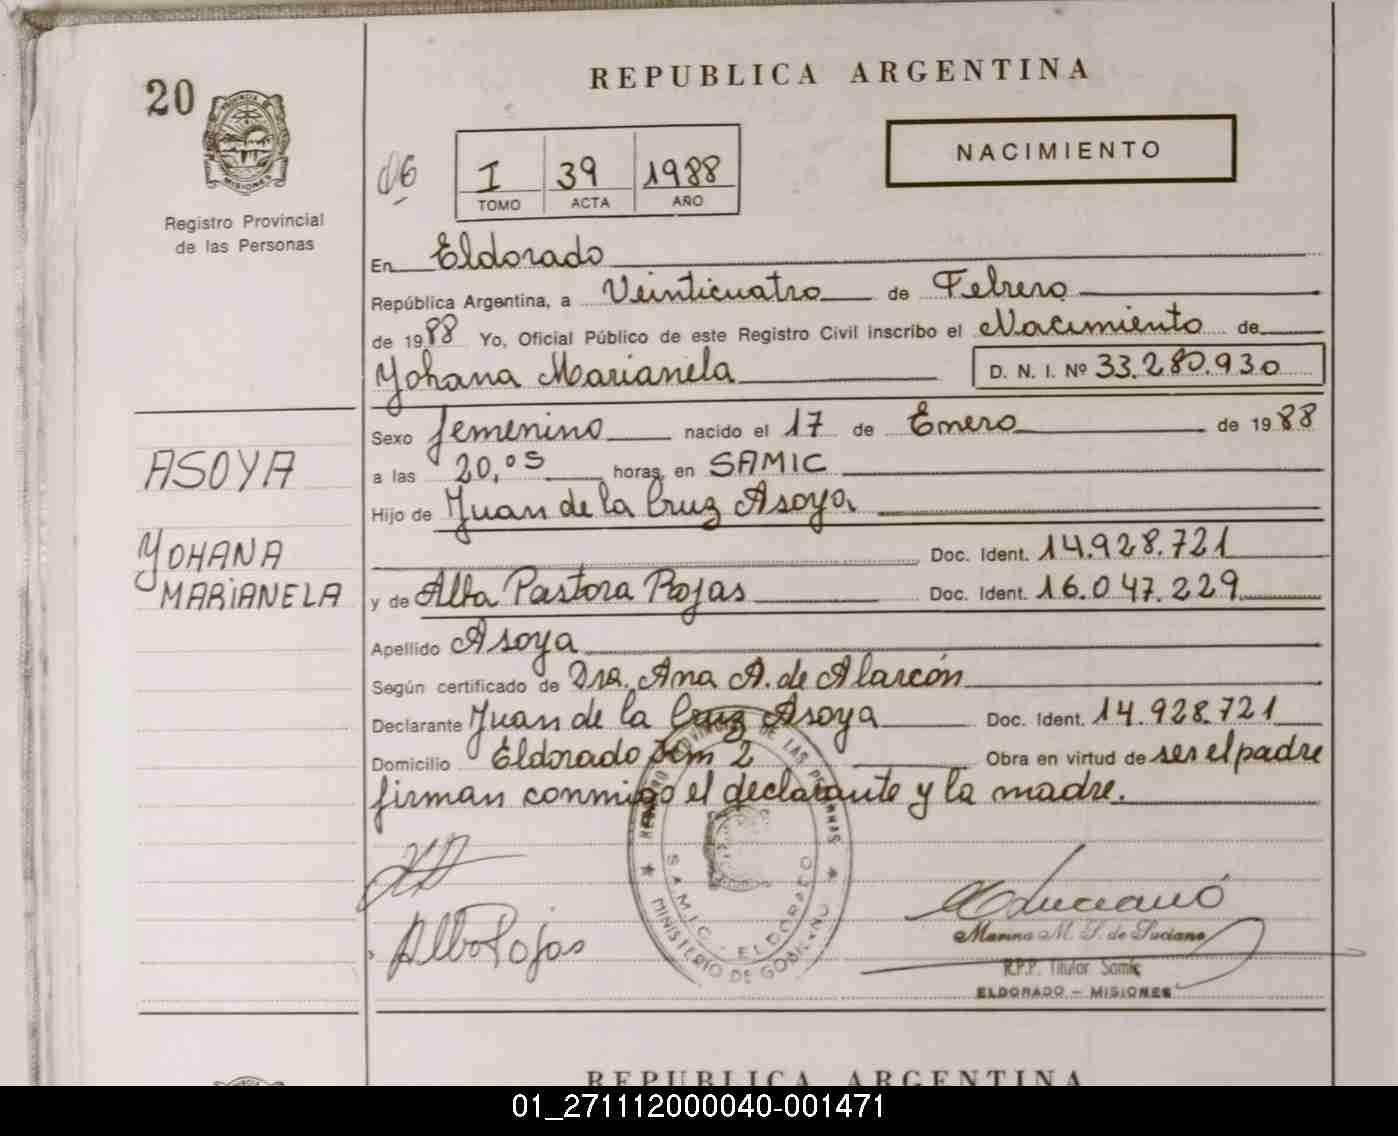 20
REPUBLICA ARGENTINA
PROVINCIA DE MISIONES
Registro Provincial
de las Personas
06
I 39 1988
TOMO ACTA AÑO
NACIMIENTO
En Eldorado
República Argentina, a Veinticuatro de Febrero
de 1988 Yo, Oficial Público de este Registro Civil inscribo el Nacimiento de
Yohana Marianela D. N. I. Nº 33.280.930
Sexo femenino nacido el 17 de Enero de 1988
a las 20,05 horas, en SAMIC
Hijo de Juan de la Cruz Asoya
Doc. Ident. 14.928.721
y de Alba Pastora Rojas Doc. Ident. 16.047.229
Apellido Asoya
Según certificado de Dra. Ana A. de Alarcón
Declarante Juan de la Cruz Asoya Doc. Ident. 14.928.721
Domicilio Eldorado Km 2 Obra en virtud de ser el padre
firman conmigo el declarante y la madre.
ASOYA
YOHANA
MARIANELA
REGISTRO PROVINCIAL DE LAS PERSONAS
S.A.M.I.C. - ELDORADO
MINISTERIO DE GOBIERNO
Alba Rojas
Marina M. S. de Luciano
R.P.P. Titular Samic
ELDORADO - MISIONES
REPUBLICA ARGENTINA
01_271112000040-001471